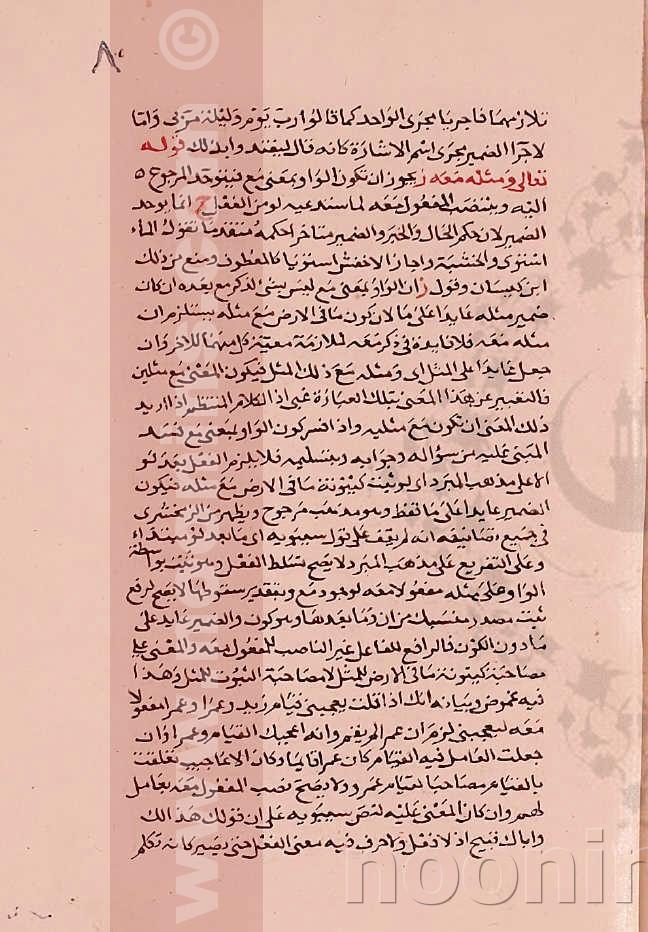 ٨٠
تلازمهما فاجريا مجرى الواحد كما قالوا رب يوم وليلة مر بى واما
لاجرا الضمير مجرى اسم الاشارة كانه قال ليفتدوا بذلك قوله
تعالى ومثله معه ز يجوز ان تكون الواو بمعنى مع فيتوحد المرجوع
اليه وينتصب المفعول معه لما ستدعيه لو من الفعل ح انما يوحد
الضمير لان حكم الحال والخبر والضمير متاخرا حكمه متقدما تقول الماء
استوى والخشبة واجاز الاخفش استويا كالعطف ومنع من ذلك
ابن كيسان وقول ز ان الواو بمعنى مع ليس بشئ لذكر مع بعده ان كان
ضمير مثله عايدا على ما لان كون ما فى الارض مع مثله يستلزم ان
مثله معه فلا فايدة فى ذكر معه لملازمة معية كل منهما للاخر وان
جعل عايدا على المثل اى ومثله مع ذلك المثل فيكون المعنى مع مثلين
فالتعبير عن هذا المعنى بتلك العبارة عى اذ الكلام المنتظم اذا اريد
ذلك المعنى ان تكون مع مثليه واذا فسر كون الواو بمعنى مع فسد
المبنى عليه من سؤاله وجوابه وبتسليمه فلا يلزم الفعل بعد لو
الا على مذهب المبرد اى لو ثبت كينونة ما فى الارض مع مثله فيكون
الضمير عايدا على ما فقط وهو مذهب مرجوح ويظهر من الزمخشرى
فى جميع تصانيفه انه لم يقف على قول سيبويه اى ما بعد لو مبتداء
وعلى التفريع على مذهب المبرد لا يصح تسلط الفعل وهو ثبت بواسطة
الواو على مثله مفعولا معه لوجود مع وبتقدير سقوطها لا يصح لرفع
ثبت مصدر منسبك من ان وما بعدها وهو كون والضمير عايد على
ما دون الكون فالرافع للفاعل غير الناصب للمفعول معه والمعنى على
مصاحبة كينونة ما فى الارض للمثل لا مصاحبة الثبوت للمثل وهذا
فيه غموض وبيانه انك اذا قلت يعجبنى قيام زيد وعمرا وعمرا مفعولا
معه ليعجبنى لزم ان عمرا لم يقم وانه اعجبك القيام وعمرا وان
جعلت العامل فيه القيام كان عمرا قايما وكان الاعجاب تعلقت
بالقيام مصاحبا لقيام عمرو ولا يصح نصب المفعول معه بعامل
لهم وان كان المعنى عليه لنص سيبويه على ان قولك هذا لك
واباك قبيح اذ لا فعل ولا حرف فيه معنى الفعل حتى يصير كانه تكلم
www.noonin
noonin